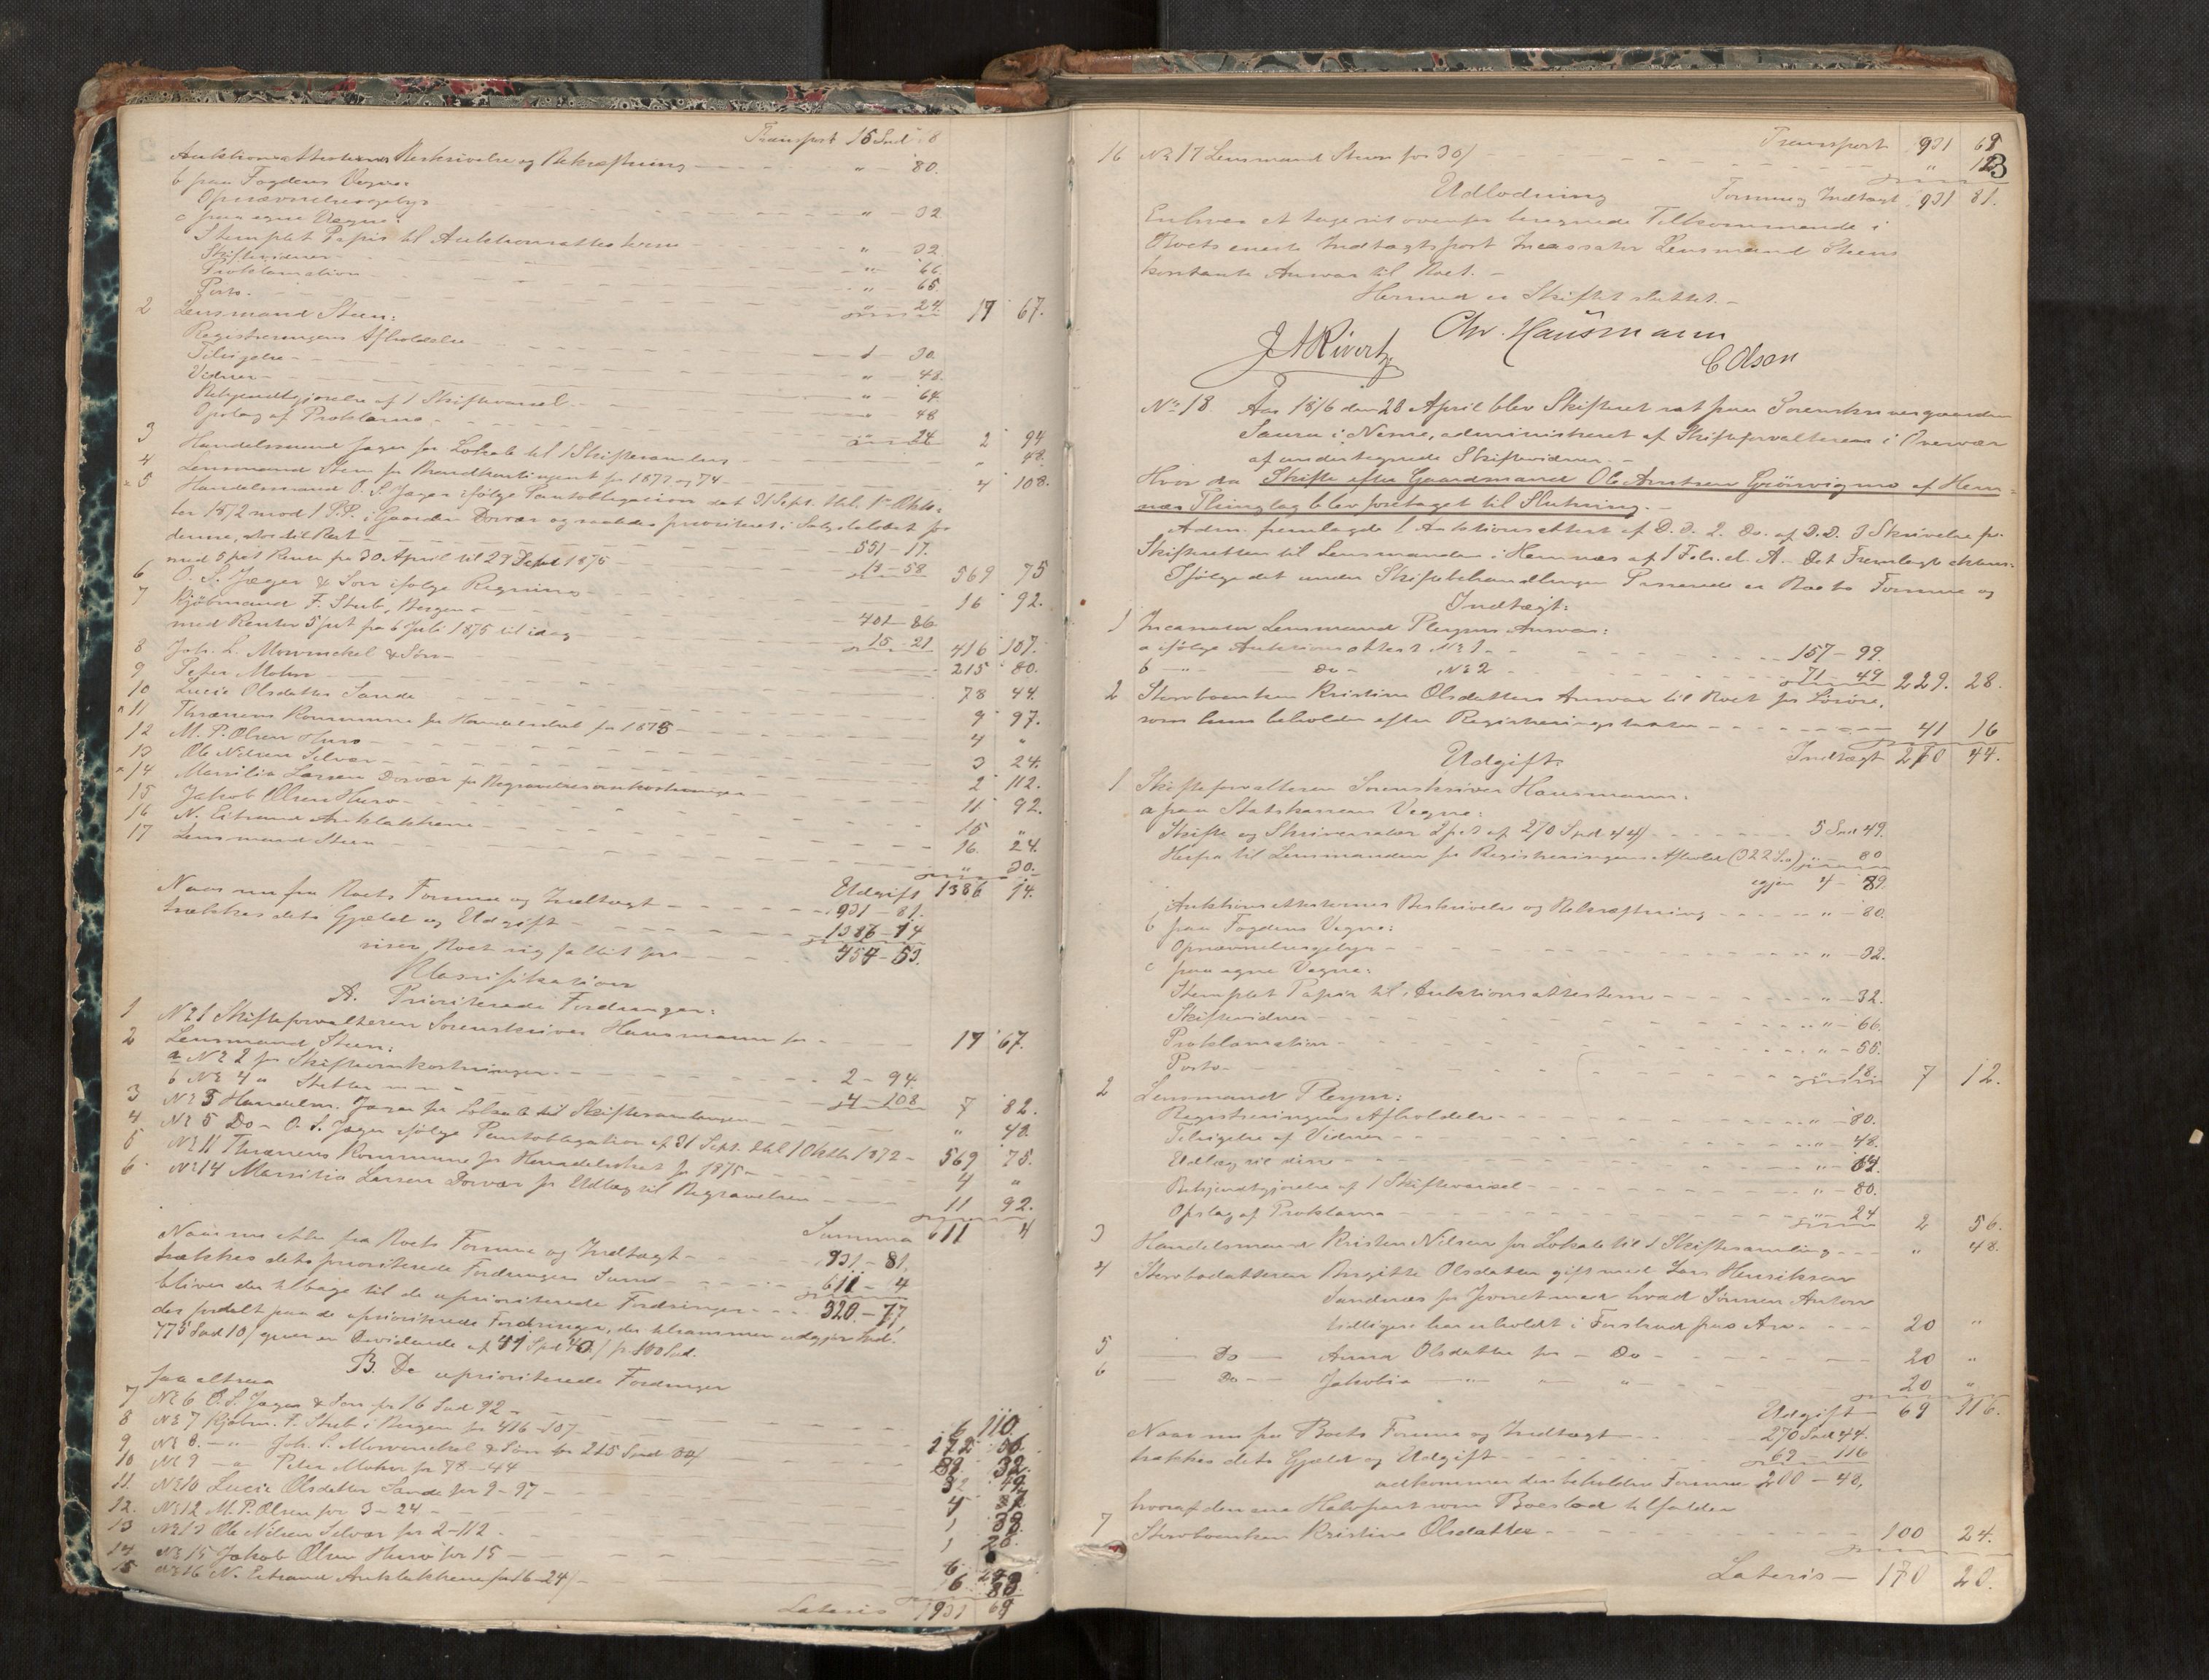 Transport 15 Spd 18
Auktionsattesternes Beskrivelse og Bekræftning — " — 80.
b paa Fogdens Vegne:
Opnævnelsesgebyr — " — 32
c paa egne Vegne:
Stemplet Papir til Auktionsattesterne — " — 32.
Skiftevidner — " — 66.
Proklamation — " — 65.
Porto — " — 24. 17 67.
2 Lensmand Steen:
Registreringens Afholdelse — 1 — 30.
Tilsigelse — " — 48.
Vidner — " — 64.
Bekjendtgjørelse af 1 Skiftevarsel — " — 48
Opslag af Proklama — " — 24 2 94
3 Handelsmand Jæger for Lokale til 1 Skiftesamling — " 48.
4 Lensmand Steen for Brandkontingent for 1873 og 74 — 4 108.
5 Handelsmand O. S. Jæger ifølge Pantobligation dat 31 Sept. thl. 1ste Okto-
ber 1872 mod 1 P.P. i Gaarden Dorvær og prioriteret i for
denne, til Rest — 551 — 17.
med 5 pCt Rente fra 30. April til 29 1875 — 18 — 58 569 75
6 O. S. Jæger & Søn ifølge Regning — 16 92.
7 Kjøbmand F. Stub, Bergen — 401 — 86
med Renter 5 pCt fra 6 Juli 1875 til idag — 15 — 21 416 107.
8 Joh. L. Mowinckel & Søn — 215 80.
9 Peter Mohn — 78 44.
10 Lucie Olsdatter Sande — 9 97.
11 Thrænens Kommune for Handelsskat for 1875 — 4 "
12 M. P. Olsen Husø — 3 24.
13 Ole Nilsen Selvær — 2 112.
14 Marsilia Larsen Dorvær for Begravelsesomkostninger — 11 92.
15 Jakob Olsen Husø — 15 "
16 N. Eitrand Anklakkene — 16. 24.
17 Lensmand Steen — " 30.
Udgift 1386 14.
Naar nu fra Boets Formue og Indtægt — 931 — 81.
trækkes dets Gjæld og Udgift — 1386 — 14
viser Boet sig fallit for — 454 — 53.
Klassifikation
A. Prioriterede Fordringer:
1 No 1 Skifteforvalteren Sorenskriver Hausmann for — 17 67.
2 Lensmand Steen:
a No 2 for Skifteomkostninger — 2 — 94.
b No 4 " Skatter — 4 — 108 7 82.
3 No 3 Handelsm. Jæger for Lokale til Skiftesamlingen — " 48.
4 No 5 Do — O. S. Jæger ifølge Pantobligation af 31 Sept. thl 1 Oktbr 1872 — 569 75.
5 No 11 Thrænens Kommune for Handelsskat for 1875 — 4 "
6 No 14 Marsilia Larsen Dorvær for Udlæg til Begravelsen — 11 92.
Summa 611 4
Naar nu atter fra Boets Formue og Indtægt — 931 — 81,
trækkes dets prioriterede Fordringers Sum — 611 — 4
bliver der tilbage til de uprioriterede Fordringer — 320 — 77,
der fordelt paa de uprioriterede Fordringer, der tilsammen udgjør Spd.
775 Spd 10/ giver en Dividende af 41 Spd 40/ pr 100 Spd.
B. De uprioriterede Fordringer
faa altsaa
7 No 6 O. S. Jæger & Søn for 16 Spd 92 — 6 110.
8 No 7 Kjøbm. F. Stub i Bergen for 416 — 107 — 172 56
9 No 8 — " Joh. L. Mowinckel & Søn for 215 Spd 80/ — 89 32.
10 No 9 — " Peter Mohn for 78 — 44 — 32 49
11. No 10 Lucie Olsdatter Sande for 9 — 97 — 4
12. No 12 M. P. Olsen for 3 — 24 — 1 38
13 No 13 Ole Nilsen Selvær for 2 — 112 — 1 26.
14 No 15 Jakob Olsen Husø for 15 — 6
15 No 16 N. Eitrand Anklakkene for 16 — 24/ — 6 83
Lateris 931 69
Transport 931 69
3
16 No 17 Lensmand Steen for 30/ — " 12
Formue og Indtægt 931 81.
Udlodning
Enhver at tage sit ovenfor beregnede Tilkommende i
Boets eneste Indtægtspost Incassator Lensmand Steens
kontante Ansvar til Boet. —
Hermed er Skiftet sluttet. —
J A Rivertz Chr. Hausmann
C Olsen
No 18. Aar 1876 den 20 April blev Skifteret sat paa Sorenskrivergaarden
i Nesne, administreret af Skifteforvalteren i Overvær
af undertegnede Skiftevidner. —
Hvor da Skifte efter Gaardmand Ole Arntsen Grønvigmo af Hem-
næs Thinglag blev foretaget til Slutning. —
Adm. fremlagde 1 Auktionsattest af D. D. 2. Do. af D. D. 3 Skrivelse fra
Skifteretten til Lensmanden i Hemnæs af 1 Febr. d. A. Det Fremlagte
Ifølge det under Skiftebehandlingen Passerede er Boets Formue og
Indtægt:
1 Incassator Lensmand Pleyms Ansvar:
a ifølge Auktionsattest No 1 — 157 — 99.
b — " — Do — No 2 — 71 — 49 229. 28.
2 Stervboenken Kristine Olsdatters Ansvar til Boet for Løsøre,
som hun beholder efter Registreringstaxten — 41 16
Indtægt 270 44.
Udgift.
1 Skifteforvalteren Sorenskriver Hausmann:
a paa Statskassens Vegne:
Skifte og Skriversalær 2 pCt af 270 Spd 44/ — 5 Spd 49.
Herfra til Lensmanden for Registreringens Afholdelse — " — 80
igjen 4 — 89.
Auktionsattesternes Beskrivelse og Bekræftning — " — 80.
b paa Fogdens Vegne:
Opnævnelsesgebyr — " — 32.
c paa egne Vegne:
Stemplet Papir til Auktionsattesterne — " — 32.
Skiftevidner — " — 66.
Proklamation — " — 55.
Porto — " — 18. 7 12.
2 Lensmand Pleym:
Registreringens Afholdelse — " — 80.
Tilsigelse af Vidner — " — 48.
Udlæg til disse — " — 64.
Bekjendtgjørelse af 1 Skiftevarsel — " — 80.
Opslag af Proklama — " — 24 2 56.
3 Handelsmand Kristen Nilsen for Lokale til 1 Skiftesamling — " 48.
4 Stervbodatteren Birgitte Olsdatter gift med Lars Henriksen
Sandnæs for Jevnet med hvad Sønnen Anton
tidligere har erholdt i Forskud paa Arv — 20 "
5 — Do — Anna Olsdatter for — Do — 20 "
6 — Do — Jakobia — " — 20 "
Udgift 69 116.
Naar nu fra Boets Formue og Indtægt — 270 Spd 44.
trækkes dets Gjæld og Udgift — 69 — 116
udkommer den beholdne Formue 200 — 48,
hvoraf den ene Halvpart som Boeslod tilfalder
7 Stervboenken Kristine Olsdatter — 100 24.
Lateris — 170 20.